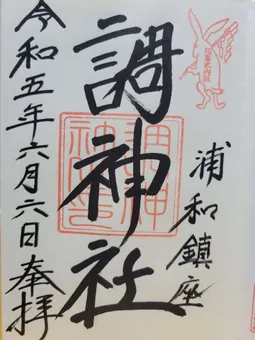 浦和鎮座
調神社
令和五年六月六日奉拝